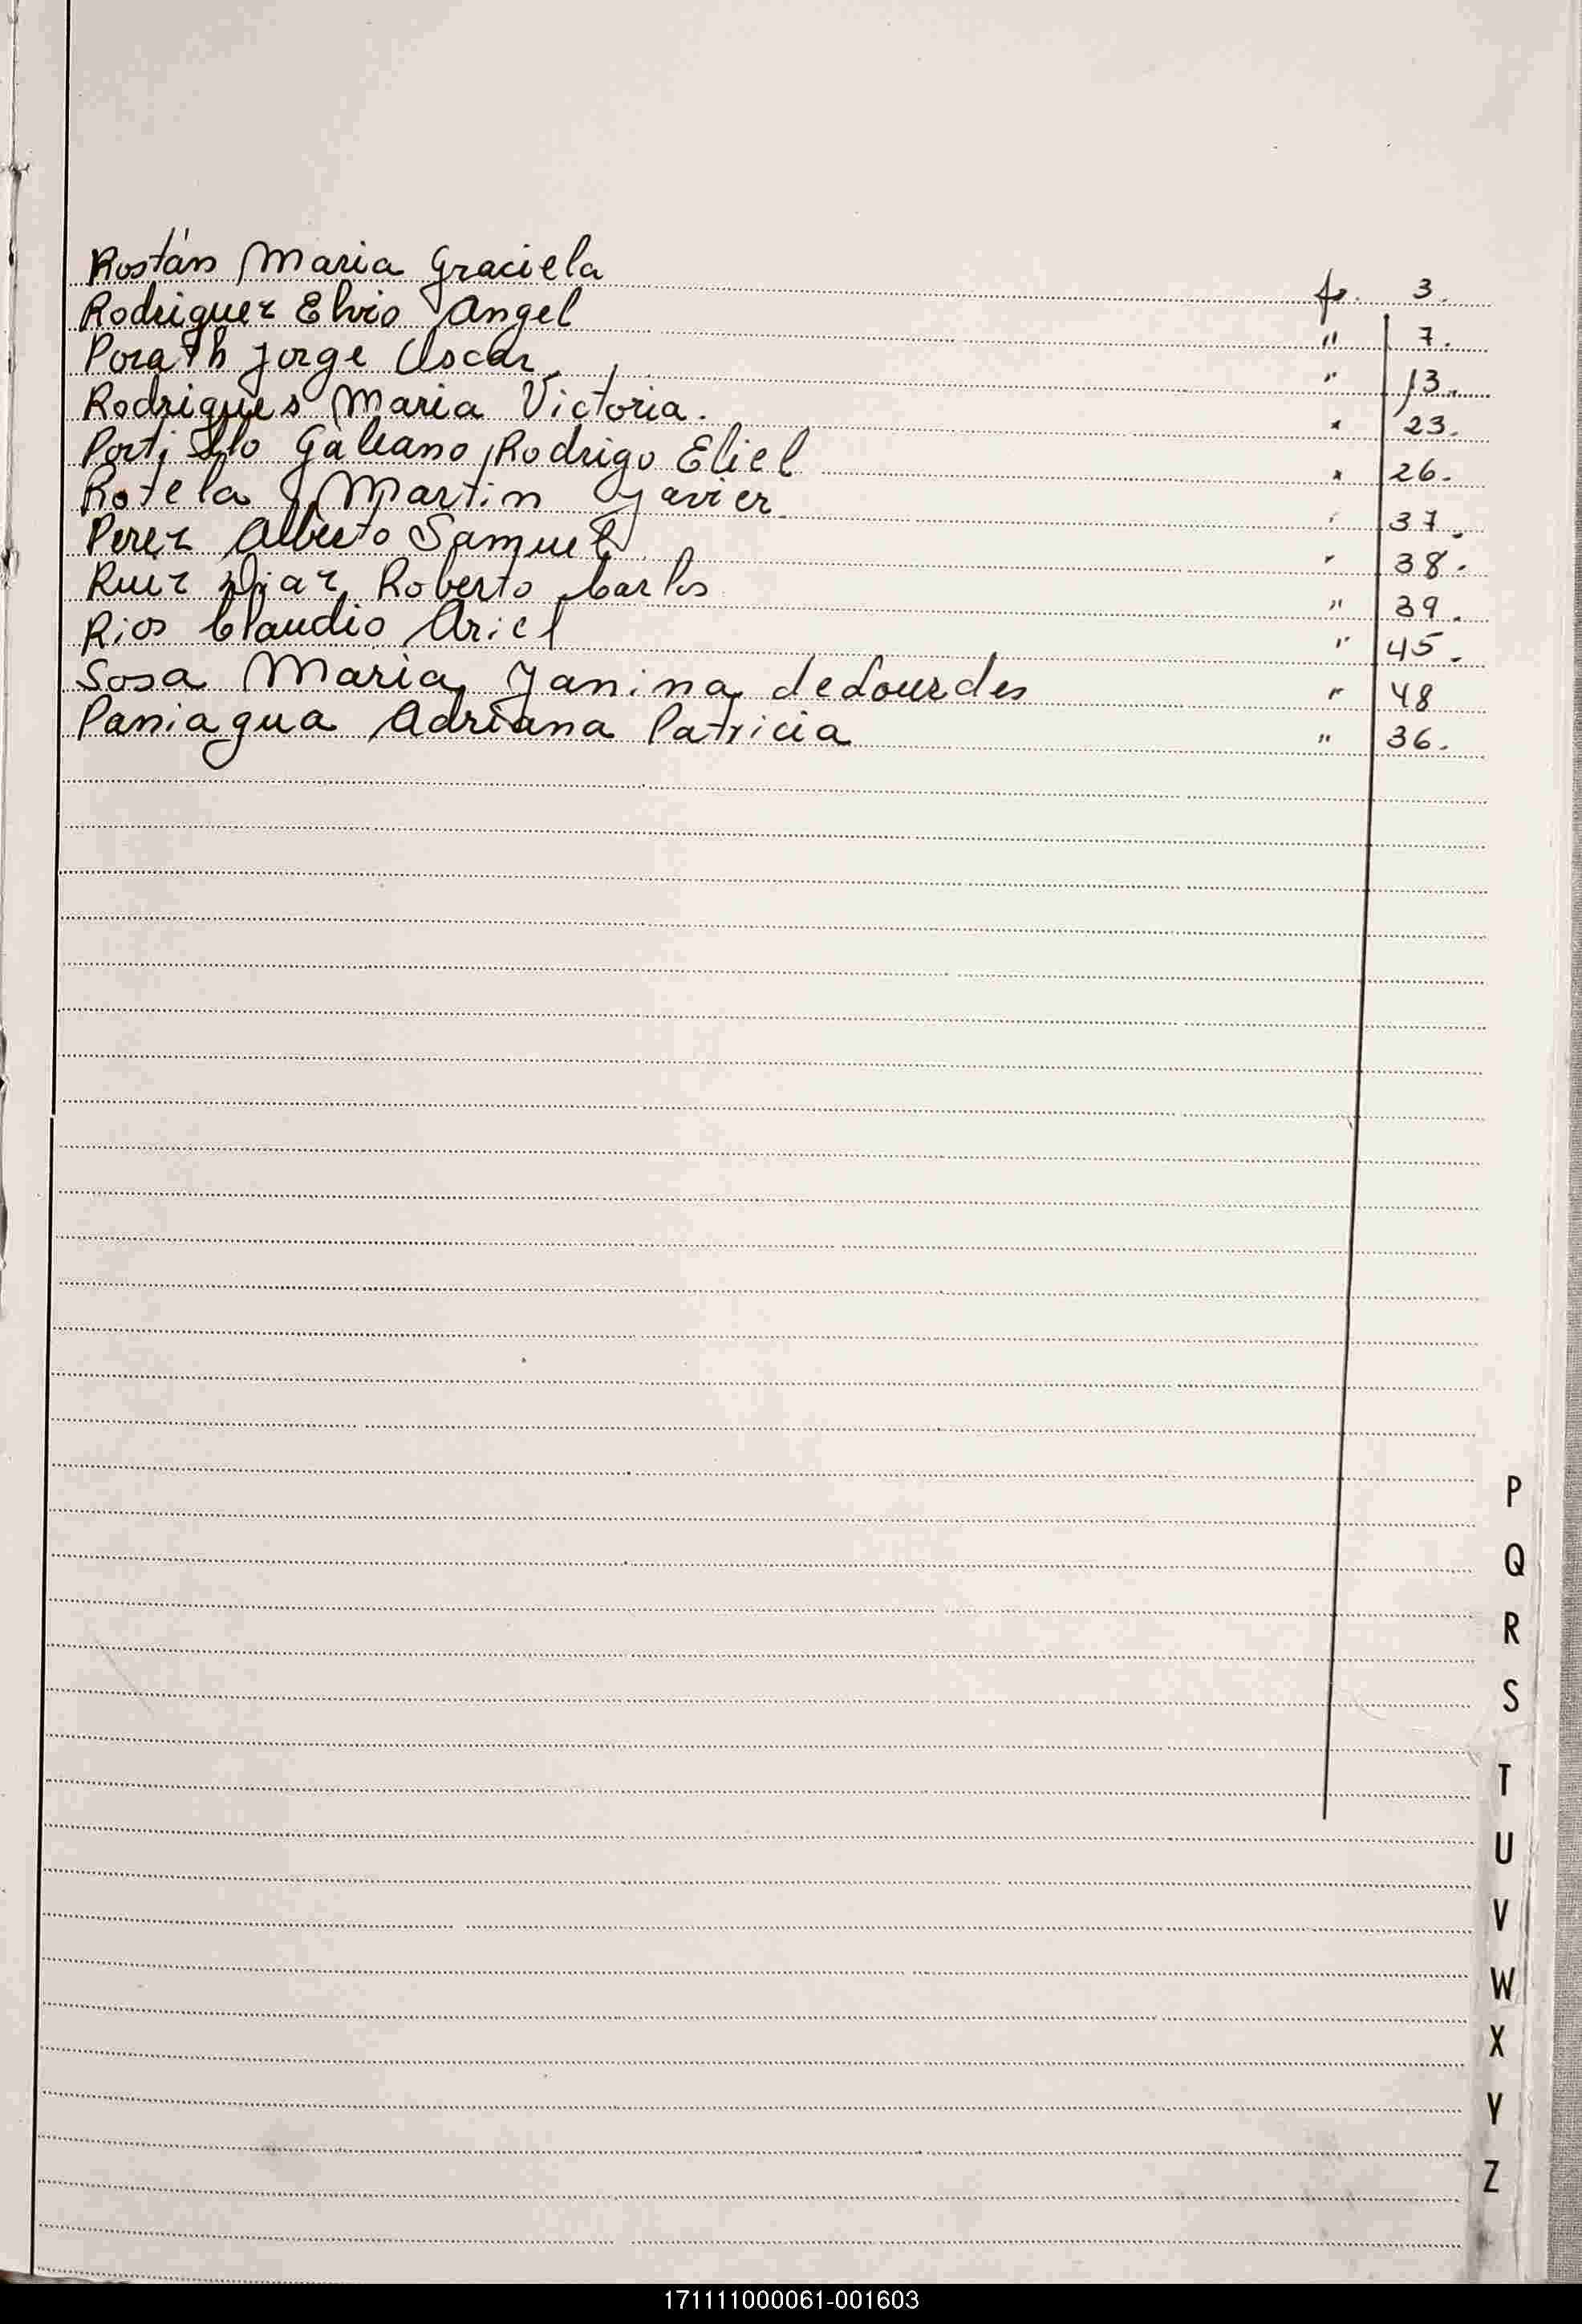 Rostán Maria Graciela fo. 3.
Rodriguez Elvio Angel " 7.
Porath Jorge Oscar " 13.
Rodrigues Maria Victoria. " 23.
Portillo Galeano Rodrigo Eliel " 26.
Rotela Martin Javier " 37.
Perez Alberto Samuel " 38.
Ruiz Diaz Roberto Carlos " 39.
Rios Claudio Ariel " 45.
Sosa Maria Yanina de Lourdes " 48
Paniagua Adriana Patricia " 36.
P
Q
R
S
T
U
V
W
X
Y
Z
171111000061-001603